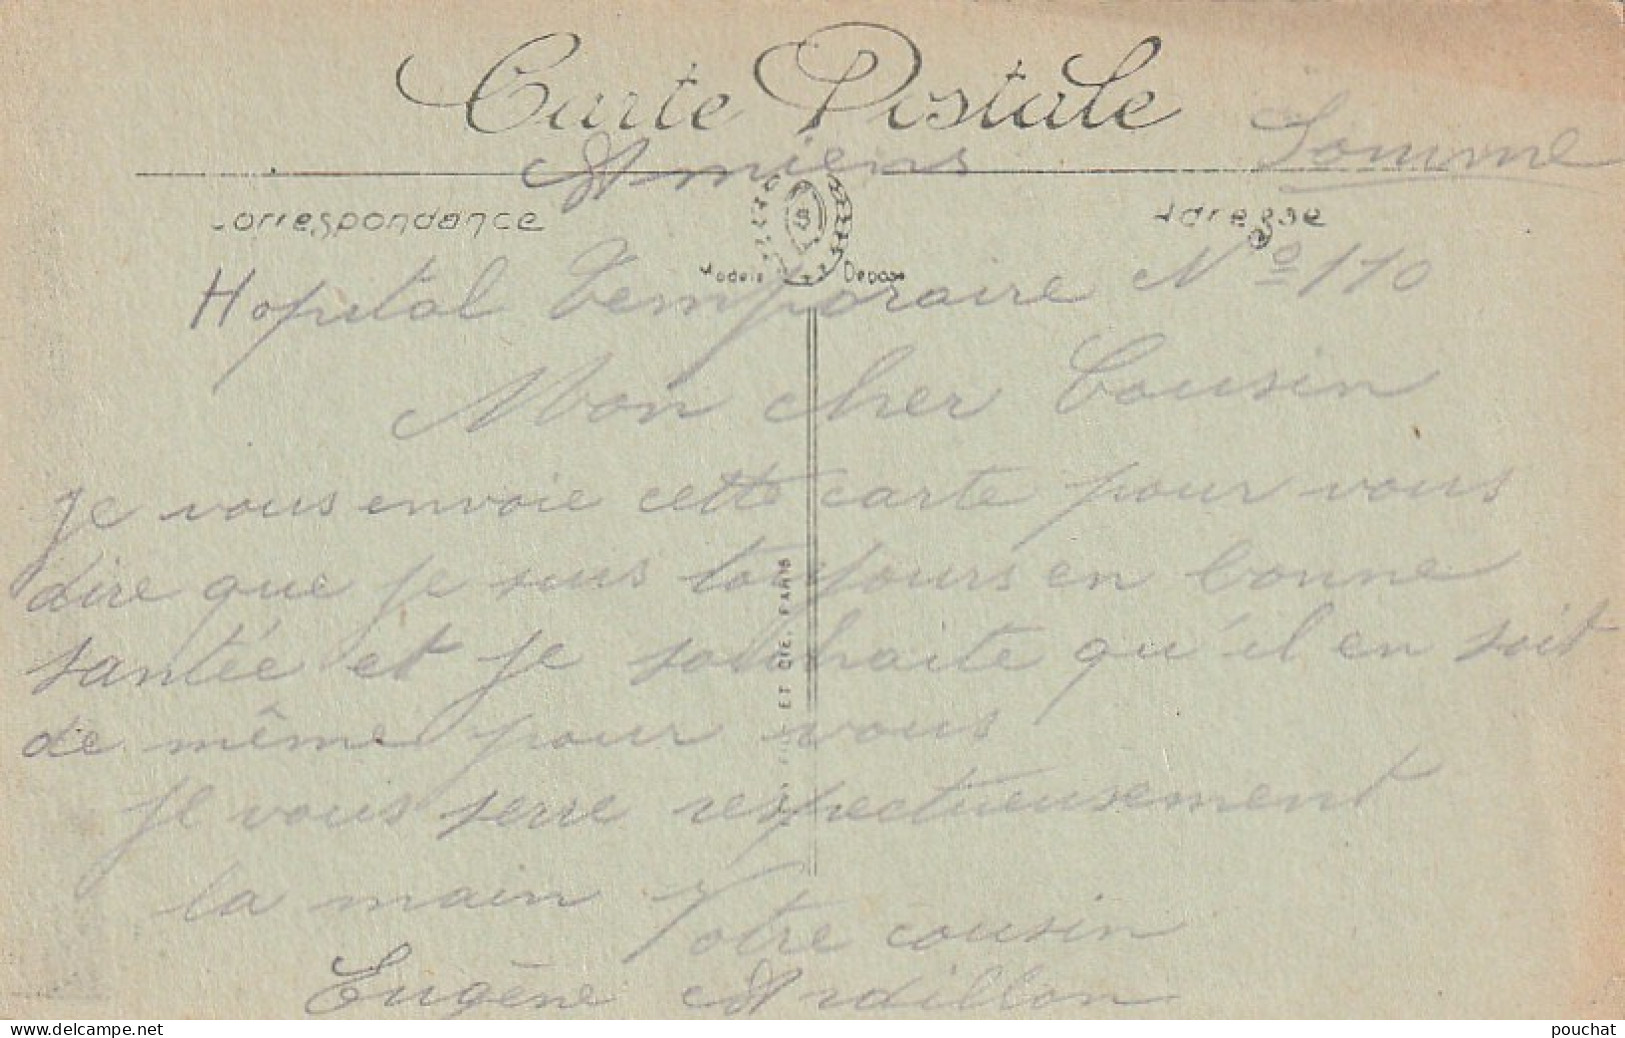 Carte Postale
Amiens Somme
Correspondance Adresse
S
Modele Depose
Hopital Temporaire Nº 110
Mon cher Cousin
Je vous envoie cette carte pour vous
dire que je suis toujours en bonne
santée et je souhaite qu'il en soit
de même pour vous
Je vous serre respectueusement
la main Votre cousin
Eugène Ardillon
ET CIE, PARIS
www.delcampe.net
pouchat